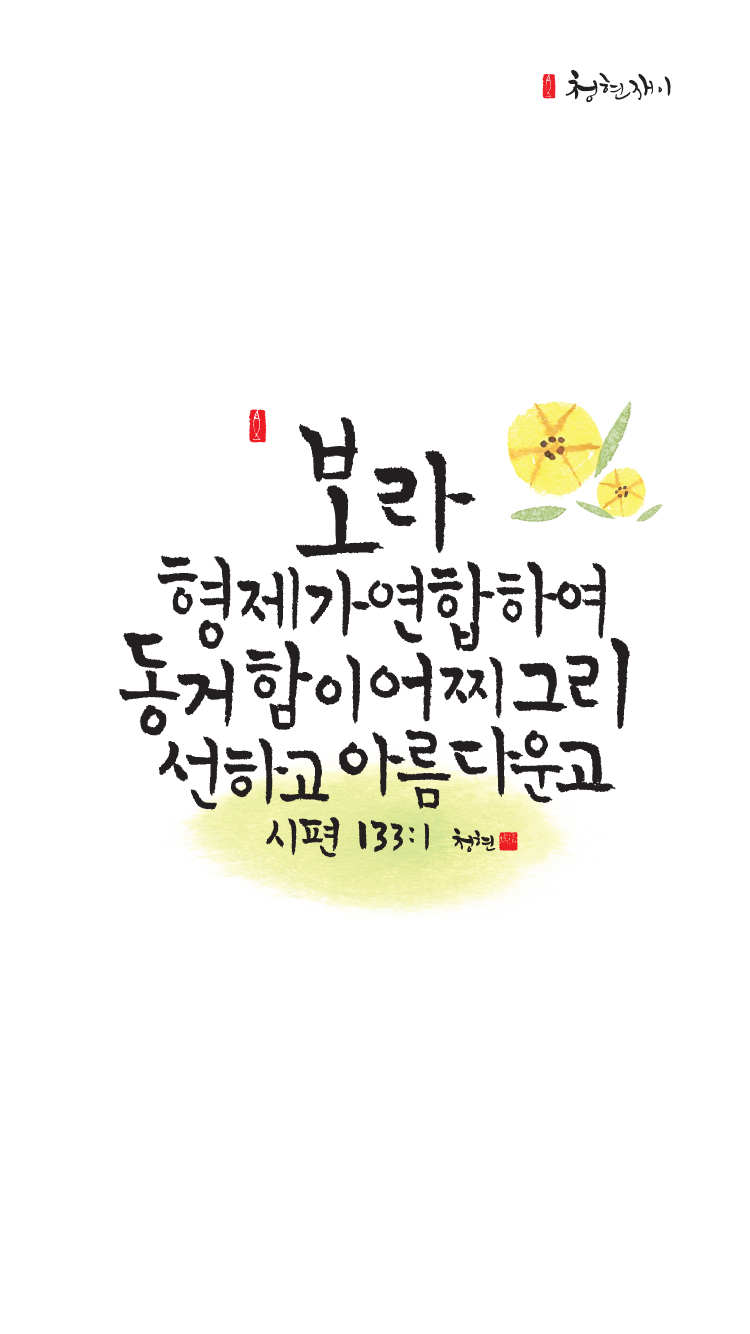 청현재이
보라
형제가 연합하여
동거함이 어찌 그리
선하고 아름다운고
시편 133:1 청현